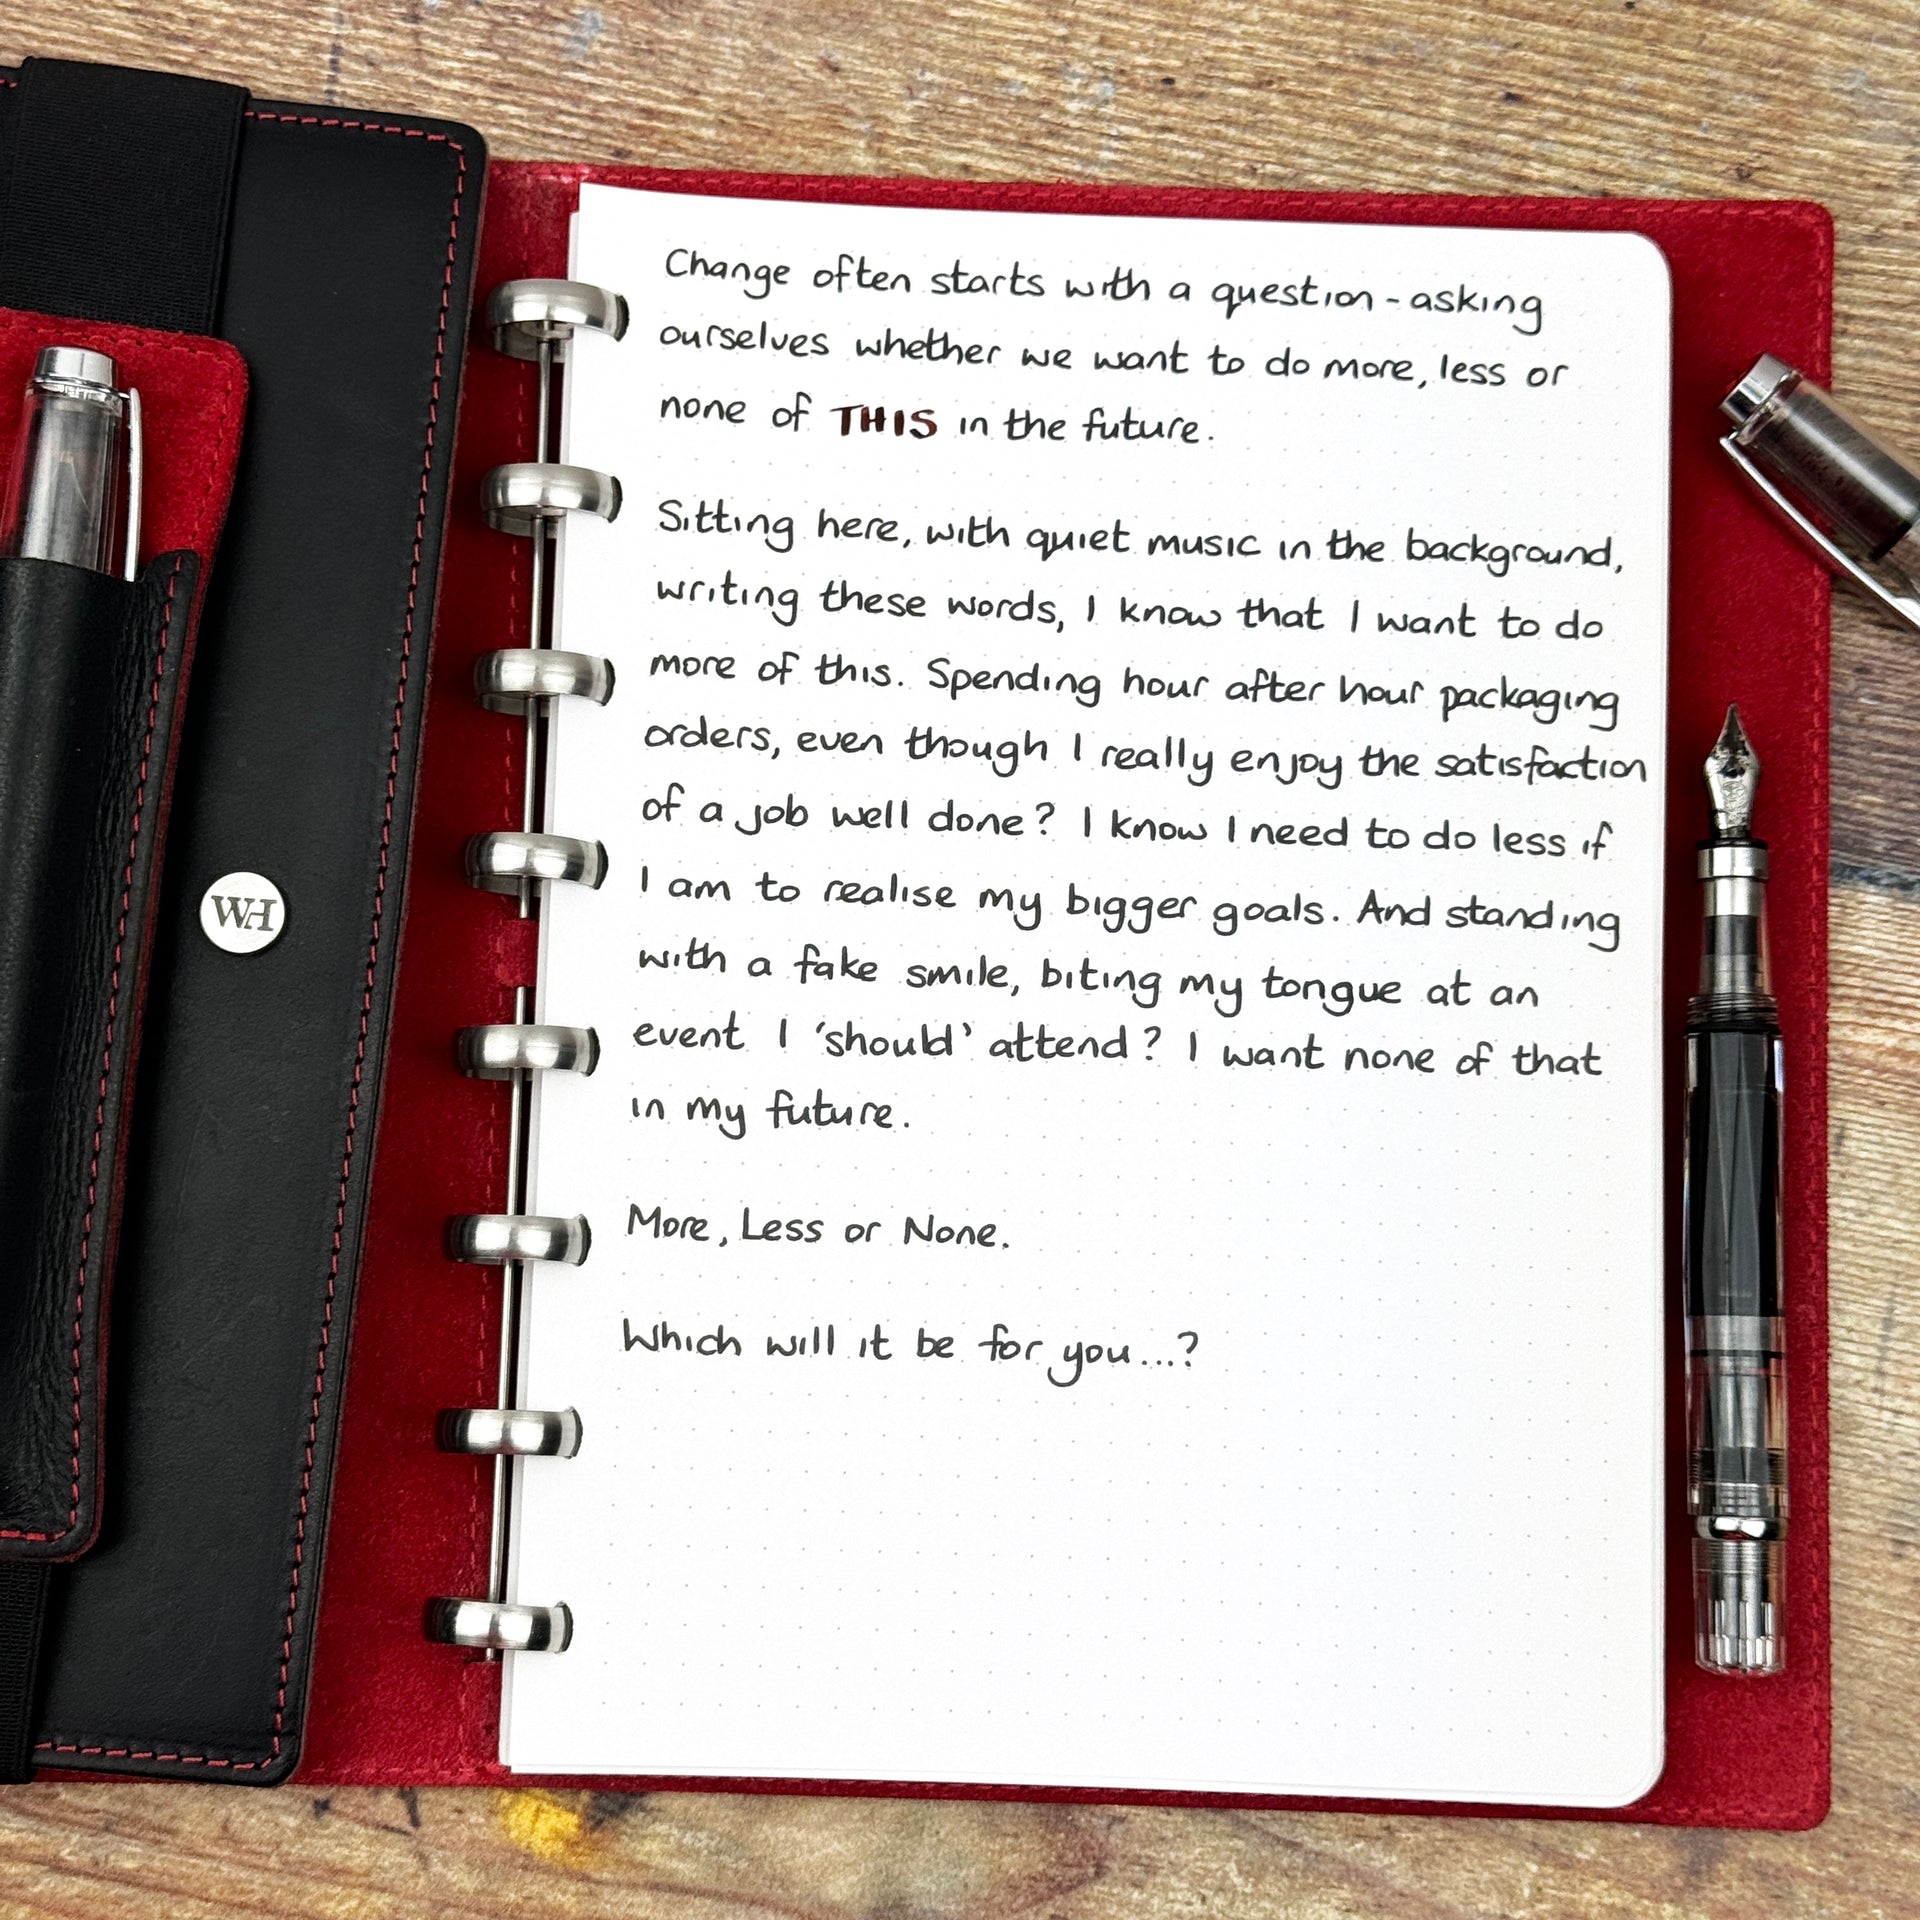 Change often starts with a question - asking
ourselves whether we want to do more, less or
none of THIS in the future.
Sitting here, with quiet music in the background,
writing these words, I know that I want to do
more of this. Spending hour after hour packaging
orders, even though I really enjoy the satisfaction
of a job well done? I know I need to do less if
I am to realise my bigger goals. And standing
with a fake smile, biting my tongue at an
event I 'should' attend? I want none of that
in my future.
More, Less or None.
Which will it be for you...?
WH